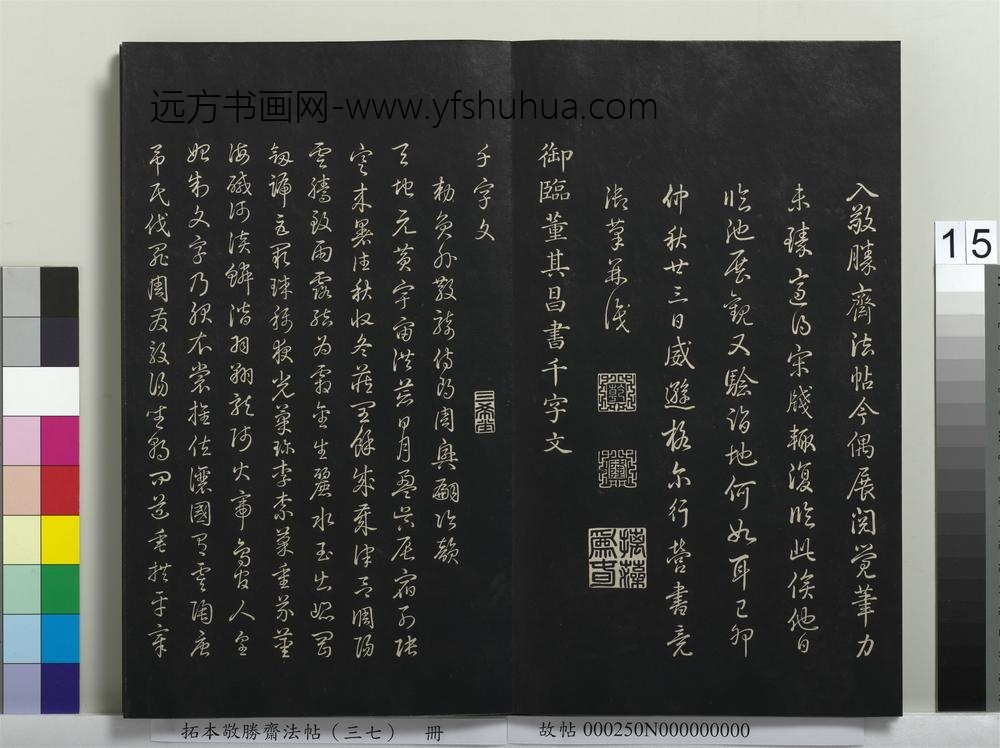 远方书画网-www.yfshuhua.com
入敬勝齊法帖今偶展閱覺筆力
未臻適得宋牋輒復臨此俟他日
臨池展觀又騐詣地何如耳己卯
仲秋廿三日威遜格尔行營書竟
御筆并識
摛藻為春
御臨董其昌書千字文
三希堂
千字文
勅員外散騎侍郎周興嗣次韻
天地元黃宇宙洪荒日月盈昃辰宿列張
寒來暑往秋收冬藏閏餘成歲律呂調陽
雲騰致雨露結為霜金生麗水玉出崐岡
劍號巨闕珠稱夜光菓珍李柰菜重芥薑
海醎河淡鱗潛羽翔龍師火帝鳥官人皇
始制文字乃服衣裳推位讓國有虞陶唐
弔民伐罪周發殷湯坐朝問道垂拱平章
15
拓本敬勝齋法帖（三七） 冊
故帖 000250N000000000